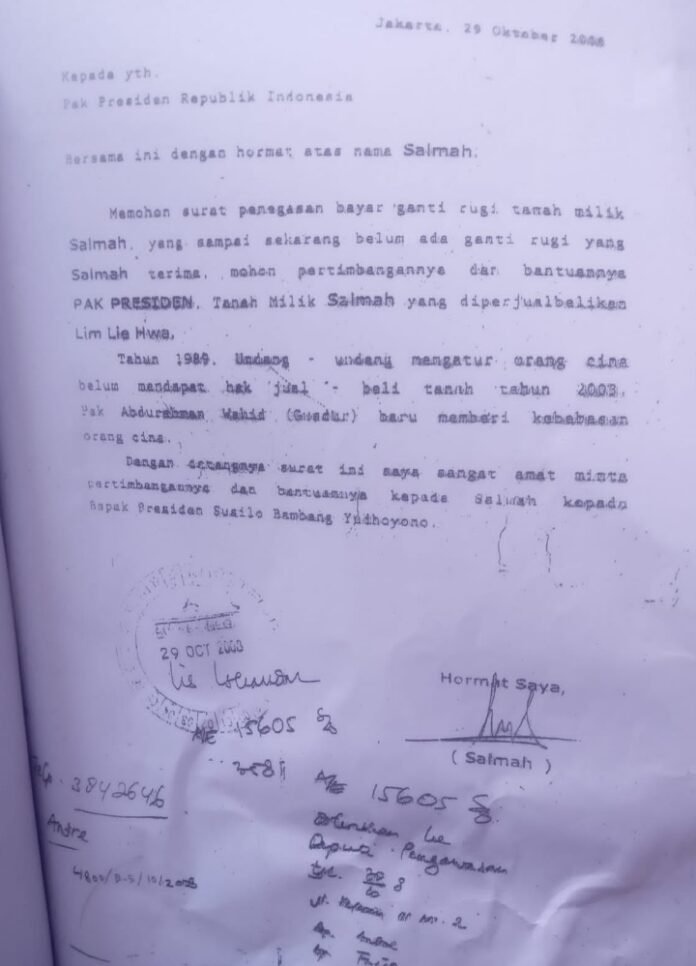 Jakarta, 29 Oktober 2008
Kepada yth.
Pak Presiden Republik Indonesia
Bersama ini dengan hormat atas nama Salmah.
Memohon surat penegasan bayar ganti rugi tanah milik
Salmah, yang sampai sekarang belum ada ganti rugi yang
Salmah terima, mohon pertimbangannya dan bantuannya
PAK PRESIDEN. Tanah Milik Salmah yang diperjualbelikan
Lim Lie Hwa.
Tahun 1989. Undang - undang mengatur orang cina
belum mandapat hak jual - beli tanah tahun 2003.
Pak Abdurahman Wahid (Gusdur) baru memberi kebabasan
orang cina.
Dengan datangnya surat ini saya sangat amat minta
pertimbangannya dan bantuannya kepada Salmah kepada
Bapak Presiden Susilo Bambang Yudhoyono.
29 OCT 2008
Hormat Saya,
(Salmah)
15605
3842646
15605
Andre
Deputi Pengawasan
Andre